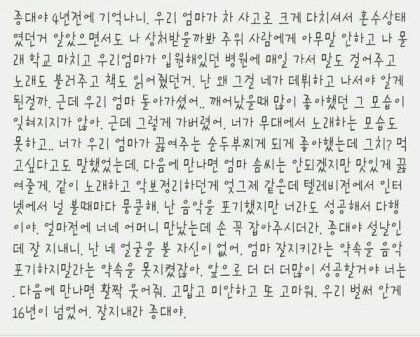 종대야 4년전에 기억나니. 우리 엄마가 차 사고로 크게 다치셔서 혼수상태
였던거 알았으면서도 나 상처받을까봐 주위 사람에게 아무말 안하고 나 몰
래 학교 마치고 우리엄마가 입원해있던 병원에 매일 가서 말도 걸어주고
노래도 불러주고 책도 읽어줬던거. 난 왜 그걸 네가 데뷔하고 나서야 알게
됬을까. 근데 우리 엄마 돌아가셨어.. 깨어났을때 많이 좋아했던 그 모습이
잊혀지지가 않아. 근데 그렇게 가버렸어. 너가 무대에서 노래하는 모습도
못하고.. 너가 우리 엄마가 끓여주는 순두부찌게 되게 좋아했는데 그치? 먹
고싶다고도 말했었는데. 다음에 만나면 엄마 솜씨는 안되겠지만 맛있게 끓
여줄게. 같이 노래하고 악보정리하던게 엊그제 같은데 텔레비전에서 인터
넷에서 널 볼때마다 뭉클해. 난 음악을 포기했지만 너라도 성공해서 다행
이야. 얼마전에 너네 어머니 만났는데 손 꼭 잡아주시더라. 종대야 설날인
데 잘 지내니. 난 네 얼굴을 볼 자신이 없어. 엄마 잘지키라는 약속을 음악
포기하지말라는 약속을 못지켰잖아. 앞으로 더 더 더많이 성공할거야 너는
. 다음에 만나면 활짝 웃어줘. 고맙고 미안하고 또 고마워. 우리 벌써 안게
16년이 넘었어. 잘지내라 종대야.